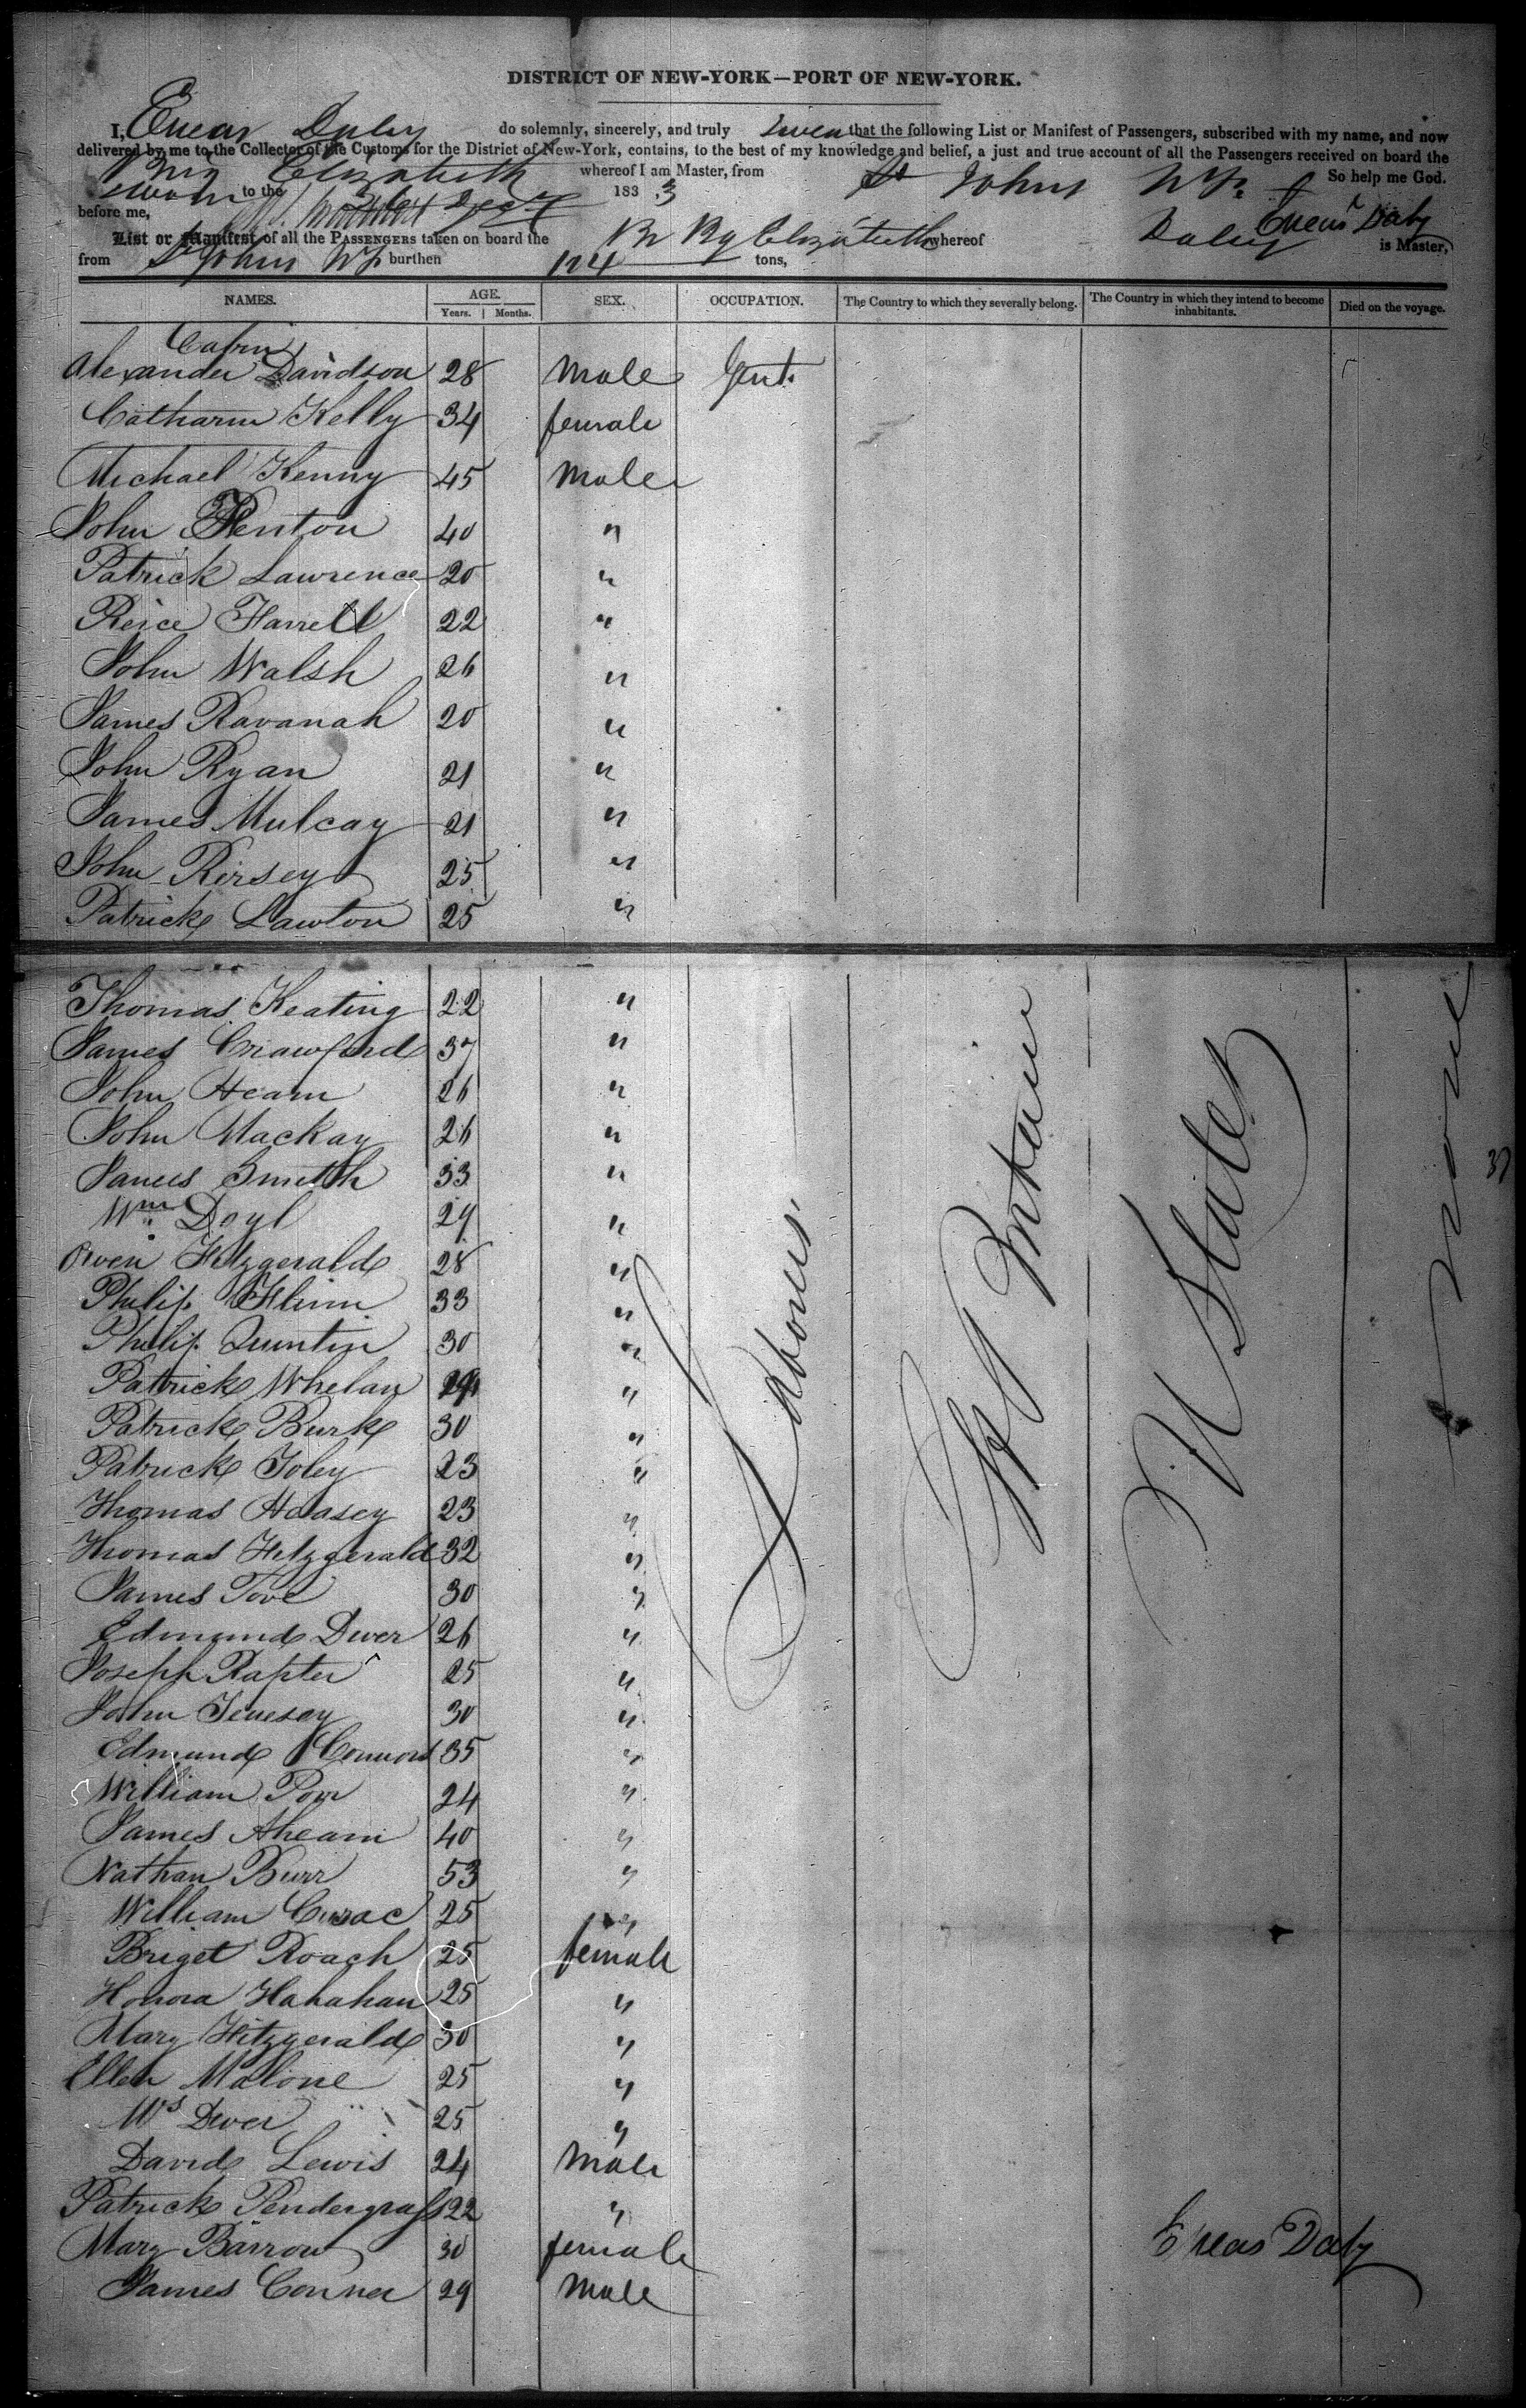 DISTRICT OF NEW-YORK—PORT OF NEW-YORK.
I, Eneas Daley do solemnly, sincerely, and truly swear that the following List or Manifest of Passengers, subscribed with my name, and now
delivered by me to the Collector of the Customs for the District of New-York, contains, to the best of my knowledge and belief, a just and true account of all the Passengers received on board the
Brig Elizabeth whereof I am Master, from St Johns NF. So help me God.
sworn to the 26 Decr 1833
before me, Eneas Daly
List or Manifest of all the PASSENGERS taken on board the Br Bg Elizabeth whereof Daley is Master,
from St Johns NF burthen 124 tons,
NAMES. AGE. SEX. OCCUPATION. The Country to which they severally belong. The Country in which they intend to become inhabitants. Died on the voyage.
Years. Months.
Cabin
Alexander Davidson 28 Male Gent.
Catharine Kelly 34 female
Michael Kenny 45 Male
John Fenton 40 "
Patrick Lawrence 20 "
Peirce Farrell 22 "
John Walsh 26 "
James Kavanah 20 "
John Ryan 21 "
James Mulcay 21 "
John Kersey 25 "
Patrick Lawton 25 "
Thomas Keating 22 "
James Crawford 37 "
John Hearn 26 "
John Mackay 26 "
James Smith 33 "
Wm Doyl 29 "
Owen Fitzgerald 28 "
Philip Flinn 33 "
Philip Quintin 30 "
Patrick Whelan "
Patrick Burk 30 "
Patrick Foley 23 "
Thomas Heasey 23 "
Thomas Fitzgerald 32 "
James Tove 30 "
Edmund Dwer 26 "
Joseph Rapter 25 "
John Fenesay 30 "
Edmund Connors 35 "
William Powr 24 "
James Ahearn 40 "
Nathan Burr 53 "
William Cusac 25 "
Briget Roach 25 female
Honora Hanahan 25 "
Mary Fitzgerald 30 "
Ellen Malone 25 "
Mrs Dwer 25 "
David Lewis 24 Male
Patrick Pendergrass 22 "
Mary Barron 30 female
James Conner 29 Male
Labourers
Gt Britain
U States
None
37
Eneas Daly